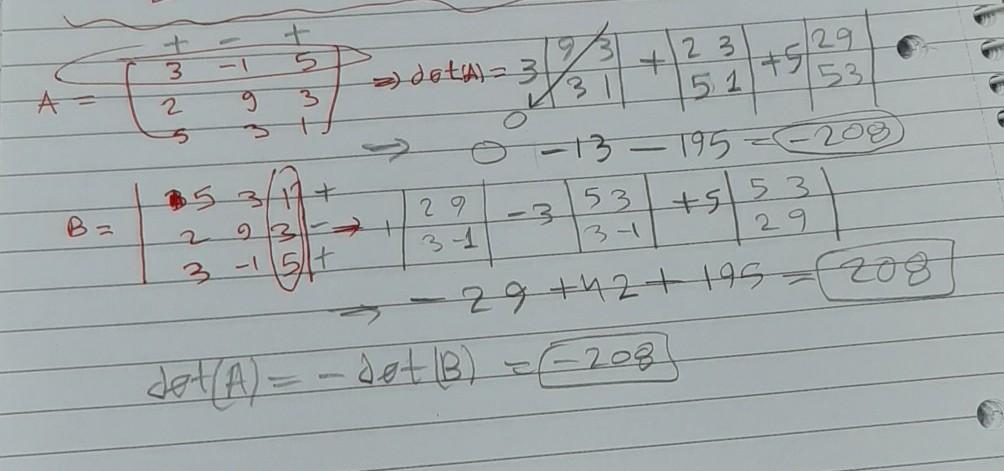 + - +
A = [3 -1 5 ; 2 9 3 ; 5 3 1] ⇒ det(A) = 3 |9 3 ; 3 1| + |2 3 ; 5 1| + 5 |2 9 ; 5 3|
0
→ 0 - 13 - 195 = -208
B = |5 3 1 ; 2 9 3 ; 3 -1 5| + - + → 1 |2 9 ; 3 -1| - 3 |5 3 ; 3 -1| + 5 |5 3 ; 2 9|
→ - 29 + 42 + 195 = 208
det(A) = - det(B) = -208